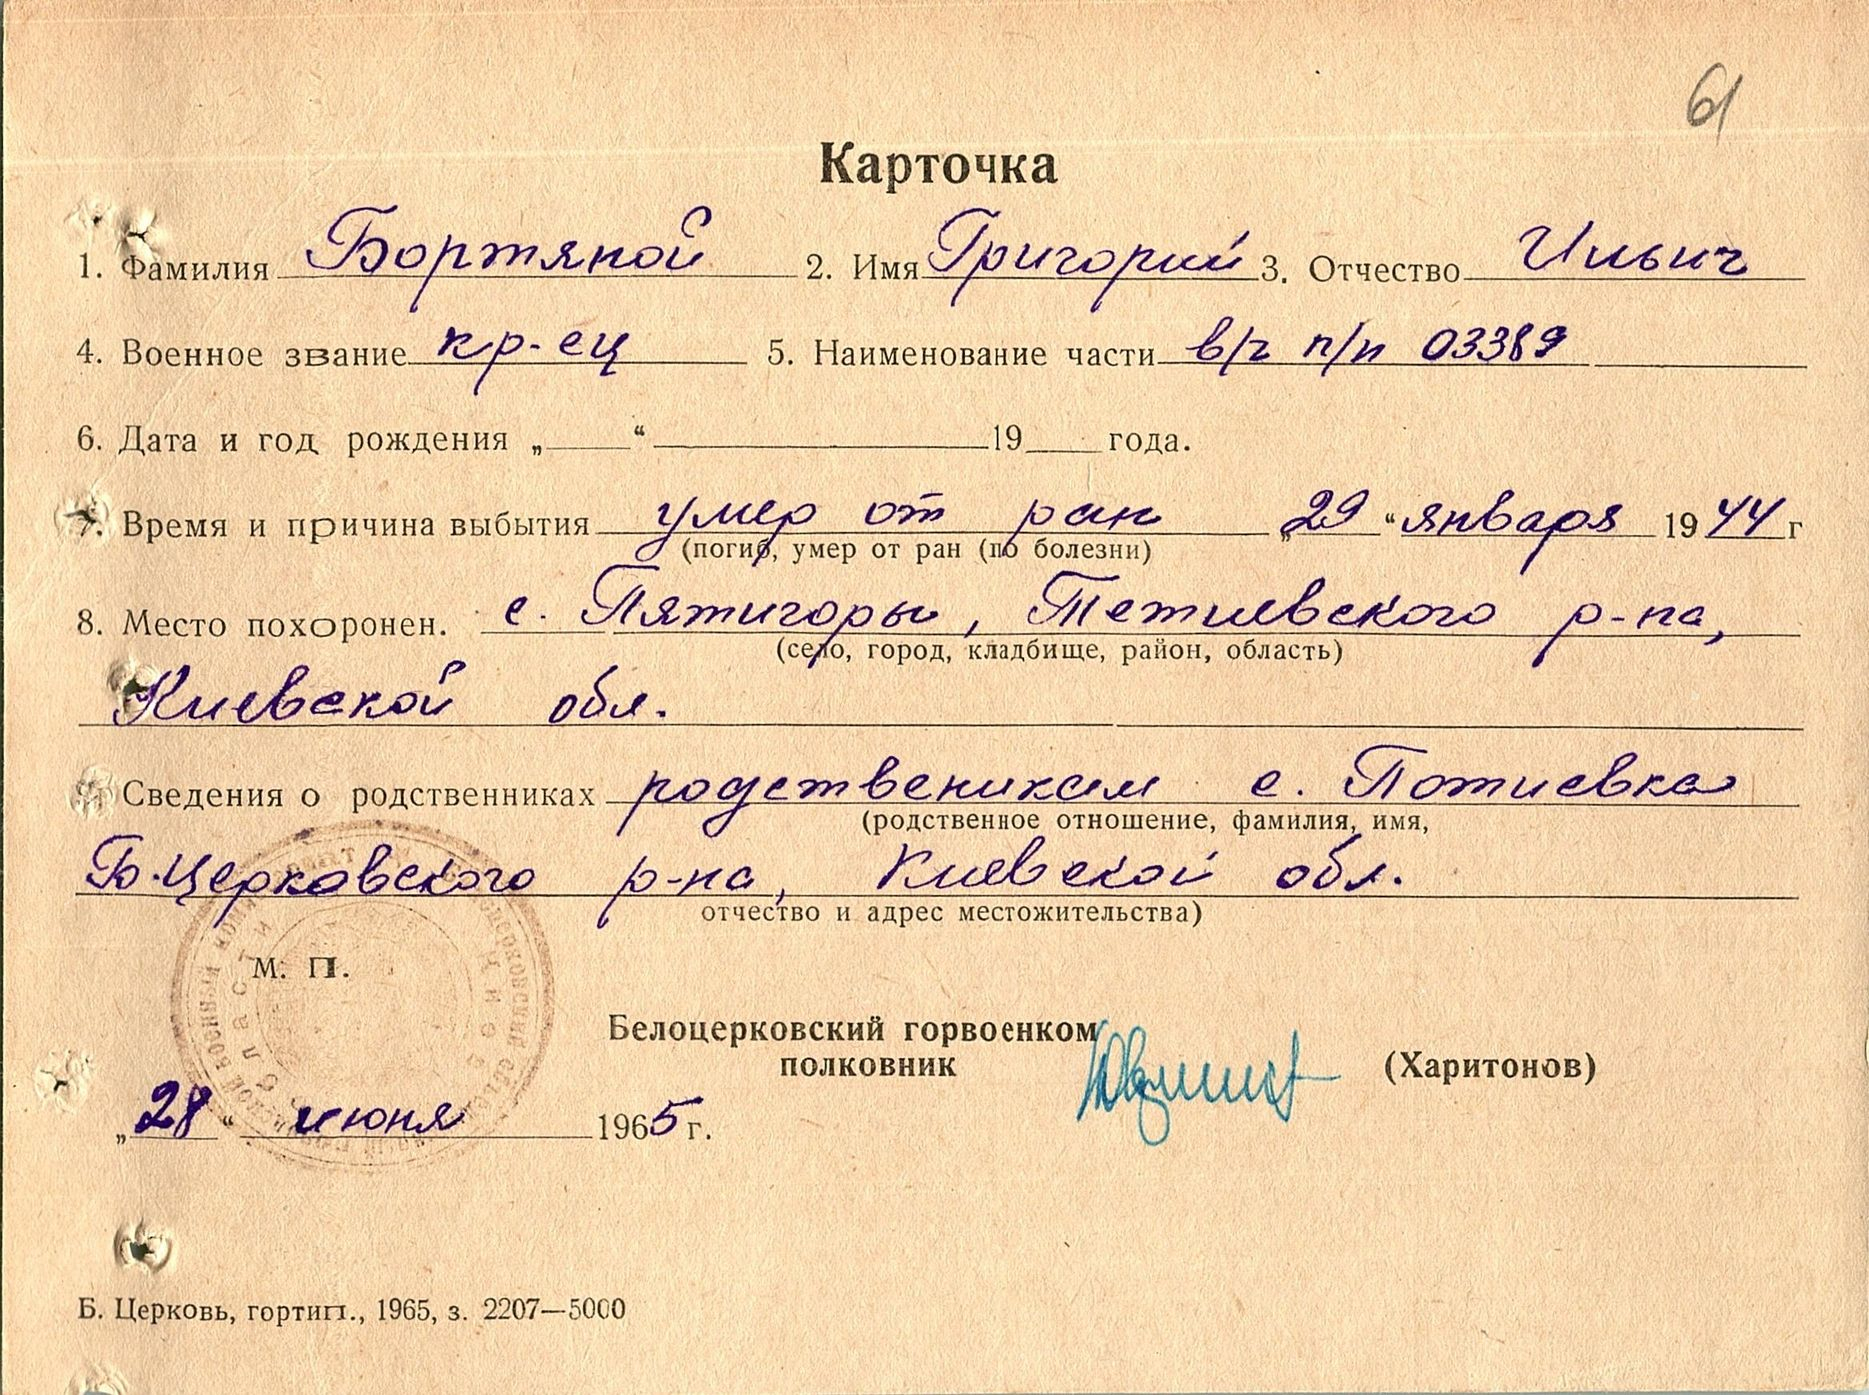 61
Карточка
1. Фамилия Бортяной 2. Имя Григорий 3. Отчество Ильич
4. Военное звание кр-ец 5. Наименование части в/ч п/п 03389
6. Дата и год рождения „ “ 19 года.
7. Время и причина выбытия умер от ран „29“ января 1944 г
(погиб, умер от ран (по болезни)
8. Место похоронен. с. Пятигоры, Тетиевского р-на,
(село, город, кладбище, район, область)
Киевской обл.
9. Сведения о родственниках родствеником с. Потиевка
(родственное отношение, фамилия, имя,
Б.Церковского р-на, Киевской обл.
отчество и адрес местожительства)
М. П.
Белоцерковский горвоенком
полковник (Харитонов)
„28“ июня 1965 г.
Б. Церковь, гортип., 1965, з. 2207—5000